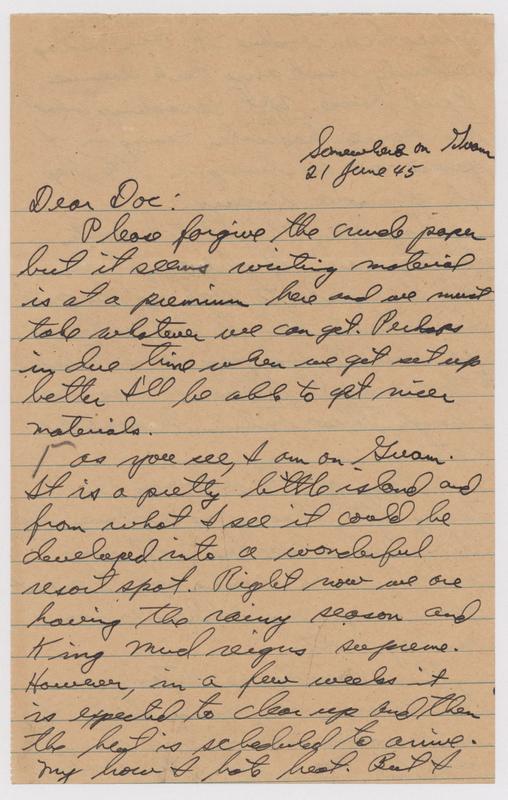 Somewhere on Guam
21 June 45
Dear Doc:
Please forgive the crude paper
but it seems writing material
is at a premium here and we must
take whatever we can get. Perhaps
in due time when we get set up
better I'll be able to get nicer
materials.
As you see, I am on Guam.
It is a pretty little island and
from what I see it could be
developed into a wonderful
resort spot. Right now we are
having the rainy season and
King Mud reigns supreme.
However, in a few weeks it
is expected to clear up and then
the heat is scheduled to arrive.
My how I hate heat. But I